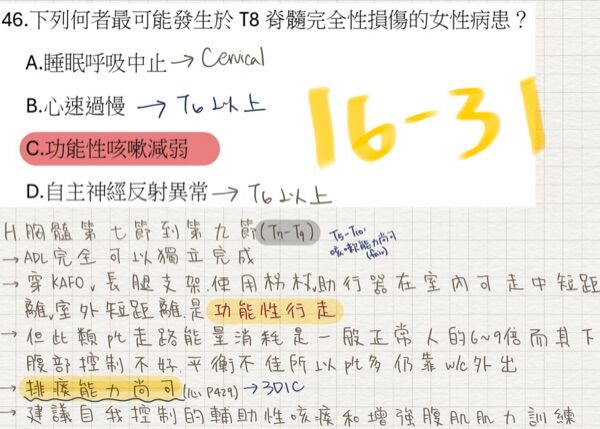 46.下列何者最可能發生於 T8 脊髓完全性損傷的女性病患？
A.睡眠呼吸中止 → Cervical
B.心速過慢 → T6 以上
C.功能性咳嗽減弱
D.自主神經反射異常 → T6 以上
16-31
H.胸髓第七節到第九節(T7-T9)
T5-T10:
咳嗽能力尚可
(fair)
→ ADL 完全可以獨立完成
→ 穿KAFO,長腿支架.使用柺杖,助行器在室內可走中短距
離,室外短距離.是功能性行走
→ 但此類pt走路能量消耗是一般正常人的6~9倍而其下
腹部控制不好.平衡不佳所以pt多仍靠w/c外出
→ 排痰能力尚可 P429) → 301C
→ 建議自我控制的輔助性咳痰和增強腹肌肌力訓練